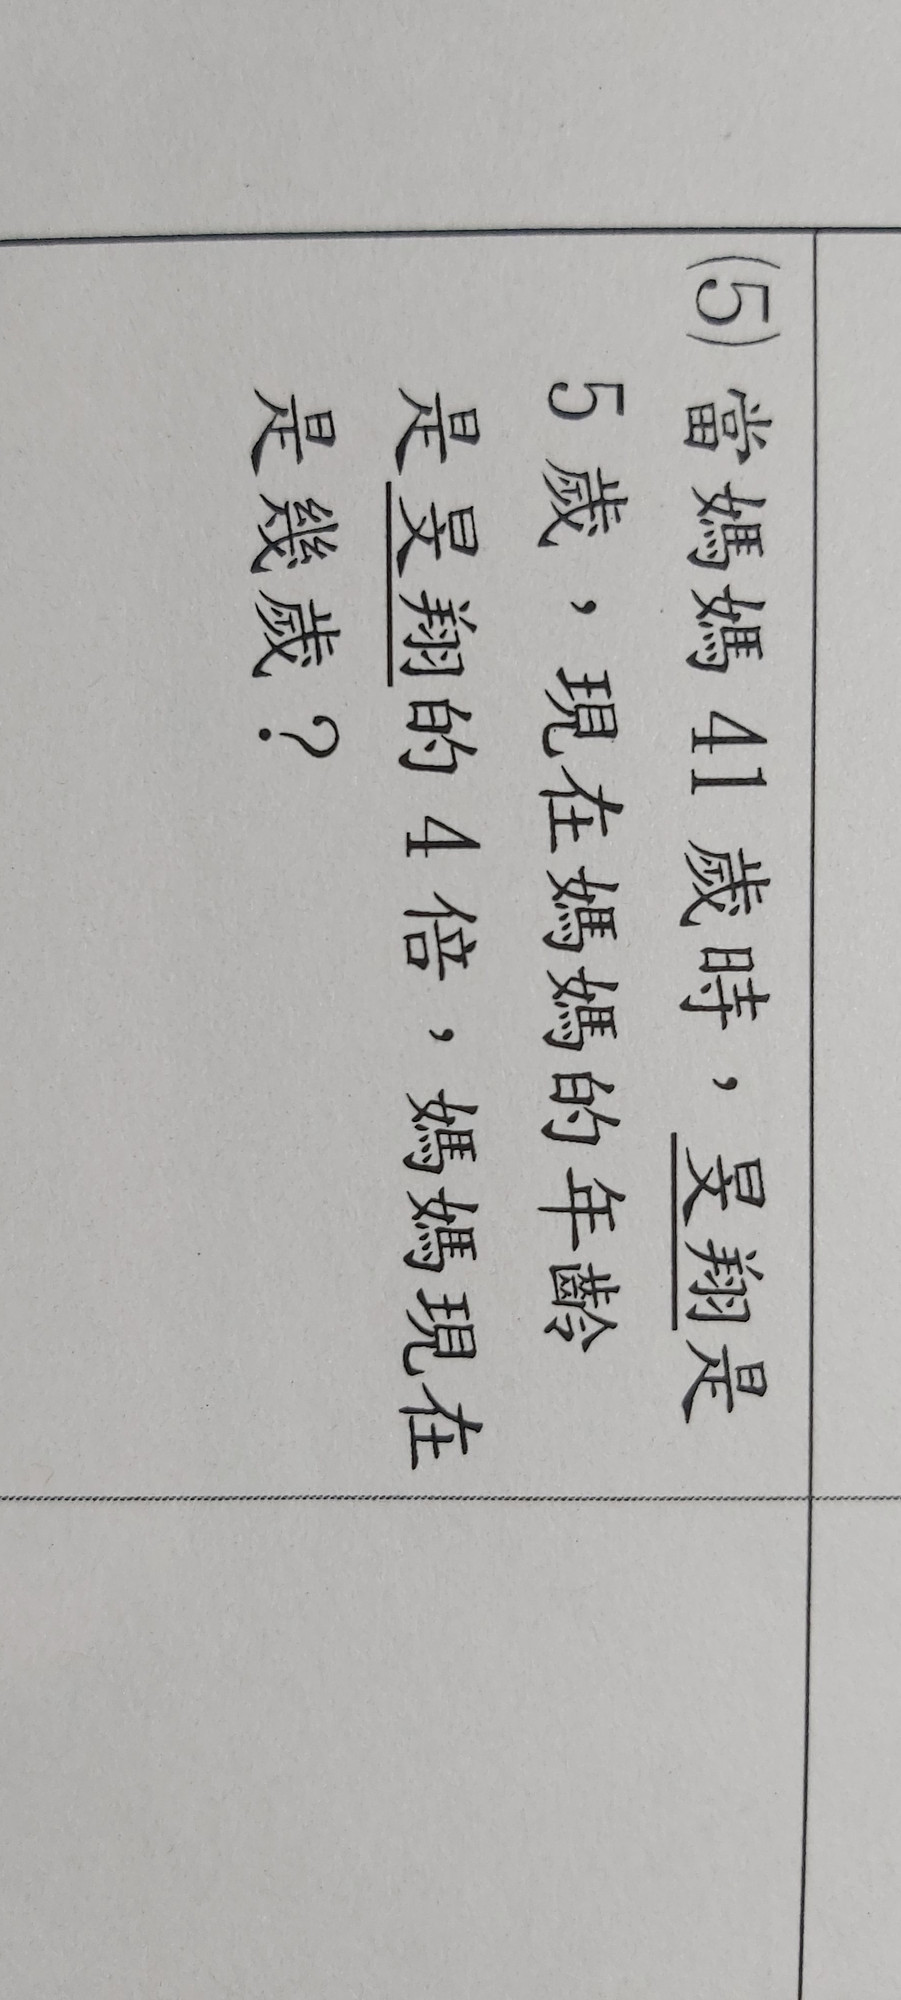 (5) 當媽媽 41 歲時，旻翔是
5 歲，現在媽媽的年齡
是旻翔的 4 倍，媽媽現在
是幾歲？